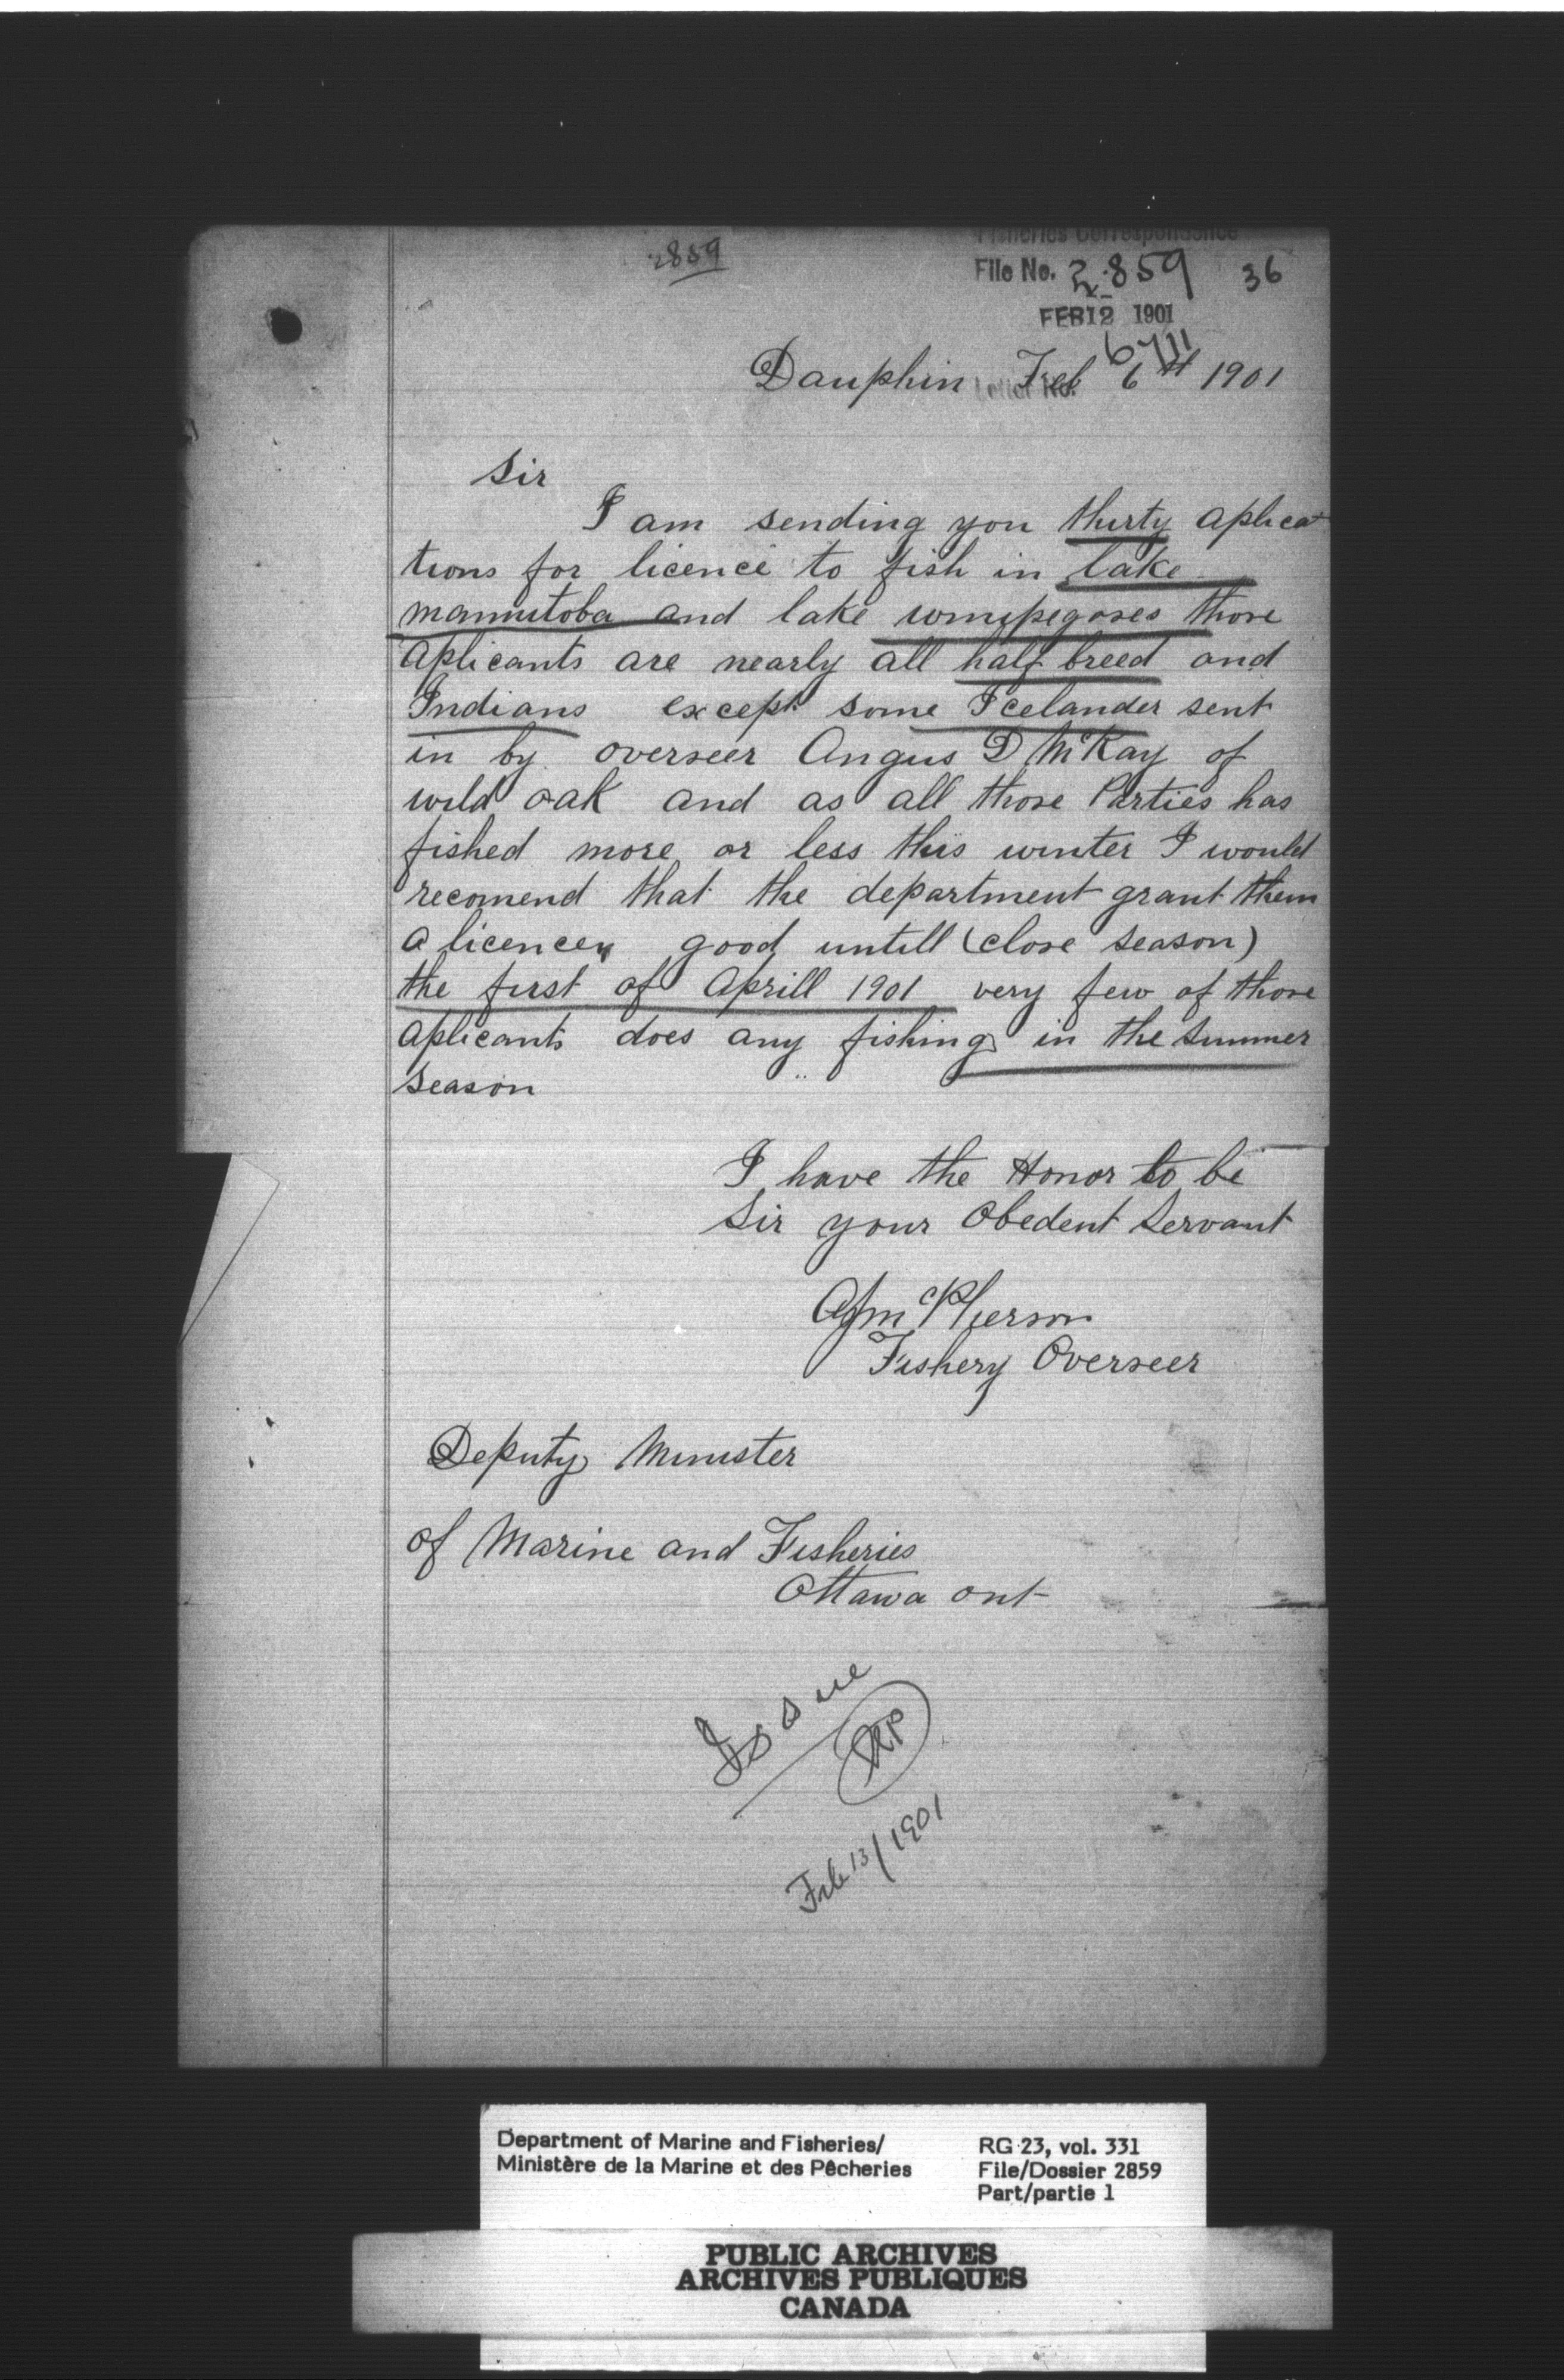 2859
Fisheries Correspondence
File No. 2859 36
FEB 12 1901
6711
Letter No.
Dauphin Feb 6th 1901
Sir
I am sending you thirty aplica
tions for licence to fish in lake
mannitoba and lake winipegoses those
aplicants are nearly all half breed and
Indians except some Icelander sent
in by overseer Angus D McKay of
wild oak and as all those Parties has
fished more or less this winter I would
recomend that the department grant them
a licence good untill (close season)
the first of Aprill 1901 very few of those
aplicants does any fishing in the summer
season
I have the Honor to be
Sir your Obedent Servant
McPherson
Fishery Overseer
Deputy Minister
of Marine and Fisheries
Ottawa ont
Issue
Feb 13/1901
Department of Marine and Fisheries/
Ministère de la Marine et des Pêcheries
RG 23, vol. 331
File/Dossier 2859
Part/partie 1
PUBLIC ARCHIVES
ARCHIVES PUBLIQUES
CANADA